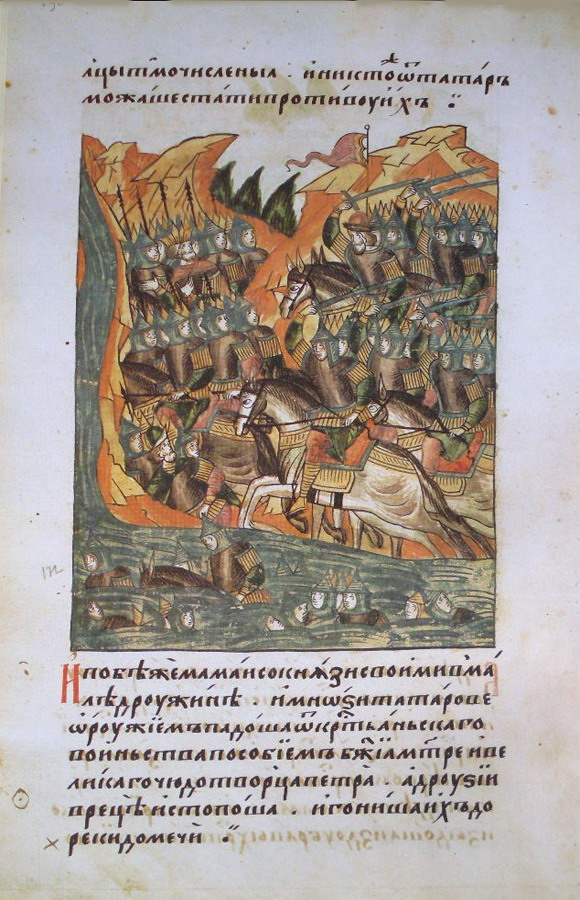 лцы тмочисленыя . и никтоже ѿ татаръ
можаше стати противоу ихъ ..
И побѣже мамаи со кнѧзи своими в ма
лѣ дроужинѣ . и мноѕи татарове
ѡроужиемъ падоша ѿ крⷭ҇тьаньскаго
воиньства пособиемъ бж҃иа мт҃ре и ве
ликаго чюдотворца петра . а дроуѕии
в рецѣ истопоша . и гониша ихъ до
реки до мечи ..